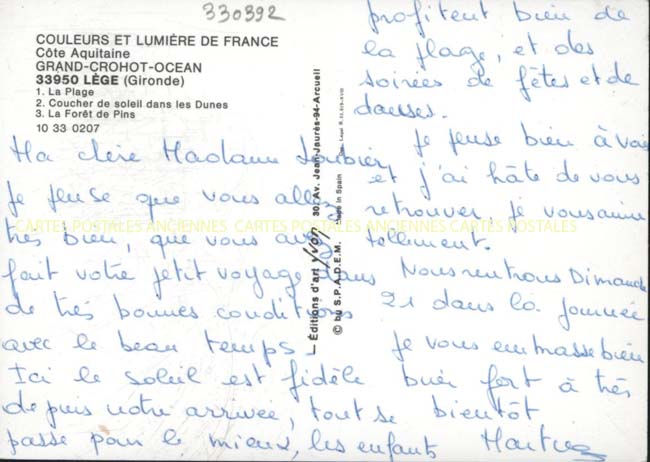 330392
COULEURS ET LUMIÈRE DE FRANCE
Côte Aquitaine
GRAND-CROHOT-OCEAN
33950 LÈGE (Gironde)
1. La Plage
2. Coucher de soleil dans les Dunes
3. La Forêt de Pins
10 33 0207
Ma chère Madame
Je pense que vous allez
très bien, que vous avez
fait votre petit voyage dans
de très bonnes conditions
avec le beau temps.
Ici le soleil est fidèle
depuis notre arrivée, tout se
passe pour le mieux, les enfants
profitent bien de
la plage, et des
soirées de fêtes et de
danses.
Je pense bien à vous
et j'ai hâte de vous
retrouver, je vous aime
tellement.
Nous rentrons Dimanche
21 dans la journée
Je vous embrasse bien
bien fort à très
bientôt
— Éditions d'art yvon 30, Av. Jean-Jaurès-94-Arcueil
© by S.P.A.D.E.M. Made in Spain
CARTES POSTALES ANCIENNES CARTES POSTALES ANCIENNES CARTES POSTALES